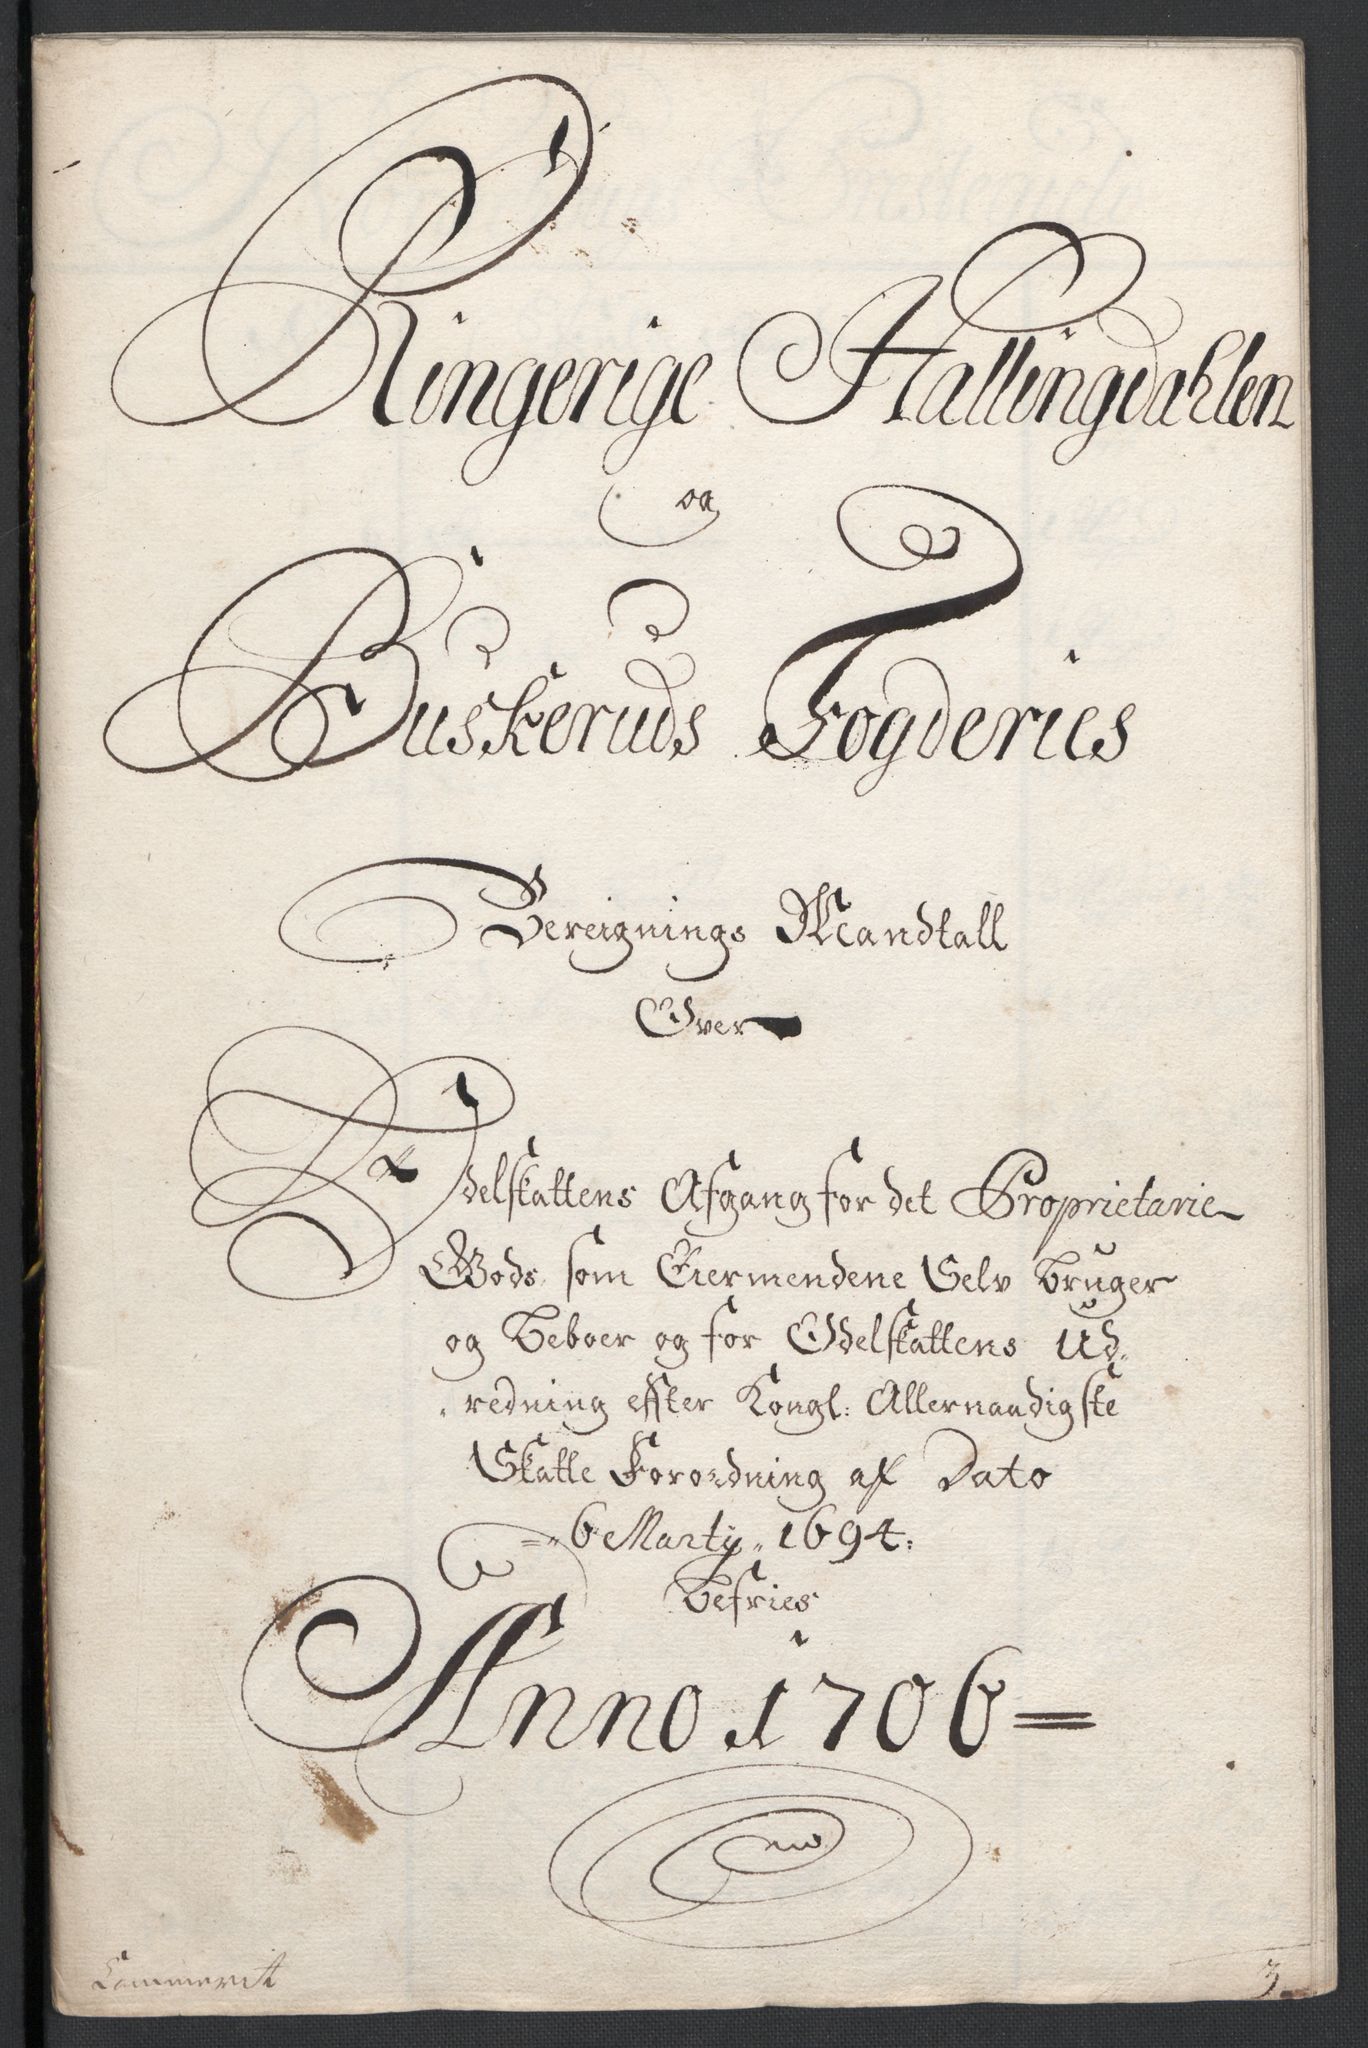 Ringerige Hallingdahlen
og
Buskeruds Fogderies
Bereignings Mandtall
Over
Odelskattens Afgang for det Proprietarie
Gods, som Eiermendene Selv bruger
og beboer og for Odelskattens Ud„
„redning effter Kongl: Allernaadigste
Skatte Forordning af Dato
6 Martij 1694:
befries
Anno 1706
3.